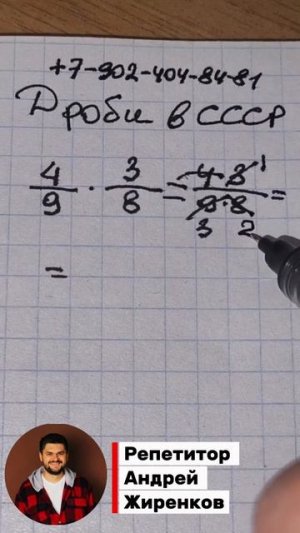 +7-902-404-84-81
Дроби в СССР
4/9 · 3/8 = 4·3/9·8 =
1
3 2
=
Репетитор
Андрей
Жиренков